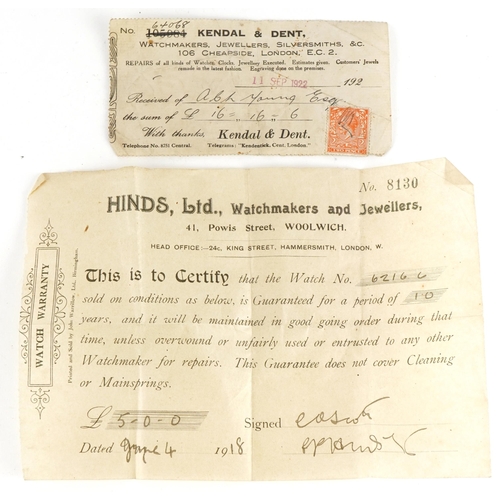 No. 64068
105084
KENDAL & DENT,
WATCHMAKERS, JEWELLERS, SILVERSMITHS, &C.
106 CHEAPSIDE, LONDON, E.C. 2.
REPAIRS of all kinds of Watches, Clocks, Jewellery Executed. Estimates given. Customers' Jewels
remade in the latest fashion. Engraving done on the premises.
11 SEP 1922 192
Received of A.C.H. Young Esq
the sum of £ 16 - 16 - 6
With thanks, Kendal & Dent.
Telephone No. 6751 Central. Telegrams: "Kendentick, Cent. London."
No. 8130
HINDS, Ltd., Watchmakers and Jewellers,
41, Powis Street, WOOLWICH.
HEAD OFFICE:—24c, KING STREET, HAMMERSMITH, LONDON, W.
WATCH WARRANTY
Printed and Sold by John Wormillow, Ltd., Birmingham.
This is to Certify that the Watch No. 62166
sold on conditions as below, is Guaranteed for a period of 10
years, and it will be maintained in good going order during that
time, unless overwound or unfairly used or entrusted to any other
Watchmaker for repairs. This Guarantee does not cover Cleaning
or Mainsprings.
£ 5-0-0 Signed
Dated June 4 1918